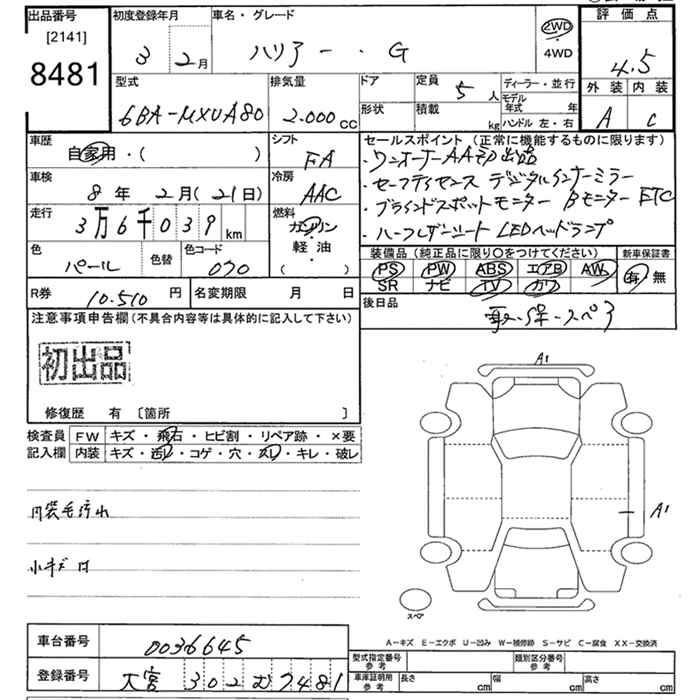 出品番号 初度登録年月 車名・グレード 2WD 評価点
[2141] 3 2月 ハリアー・G 4WD 4.5
8481 型式 排気量 ドア 定員 5人 ディーラー・並行 外装 内装
6BA-MXUA80 2.000cc 形状 積載 kg モデル年式 年 ハンドル 左・右 A C
車歴 自家用・( ) シフト FA セールスポイント (正常に機能するものに限ります)
・ワンオーナーAA初出品
車検 8年 2月(21日) 冷房 AAC ・セーフティセンス デジタルインナーミラー
走行 3万6千039km 燃料 ガソリン ・ブラインドスポットモニター Bモニター ETC
軽油 ( ) ・ハーフレザーシート LEDヘッドランプ
色 パール 色替 色コード 070 装備品 (純正品に限り○をつけてください) 新車保証書
PS PW ABS エアB AW 有・無
SR ナビ TV カワ
R券 10.510円 名変期限 月 日 後日品
取・保・スペア
注意事項申告欄(不具合内容等は具体的に記入して下さい)
初出品
修復歴 有 〔箇所 〕
検査員 FW キズ・飛石・ヒビ割・リペア跡・×要
記入欄 内装 キズ・汚レ・コゲ・穴・スレ・キレ・破レ
A1
内装毛汚れ A1
小キズ有
スペア
A-キズ E-エクボ U-凹み W-補修跡 S-サビ C-腐食 XX-交換済
車台番号 0036645
型式指定番号 参考 類別区分番号 参考
登録番号 大宮 302 む7481 車庫証明用 参考 長さ cm 幅 cm 高さ cm